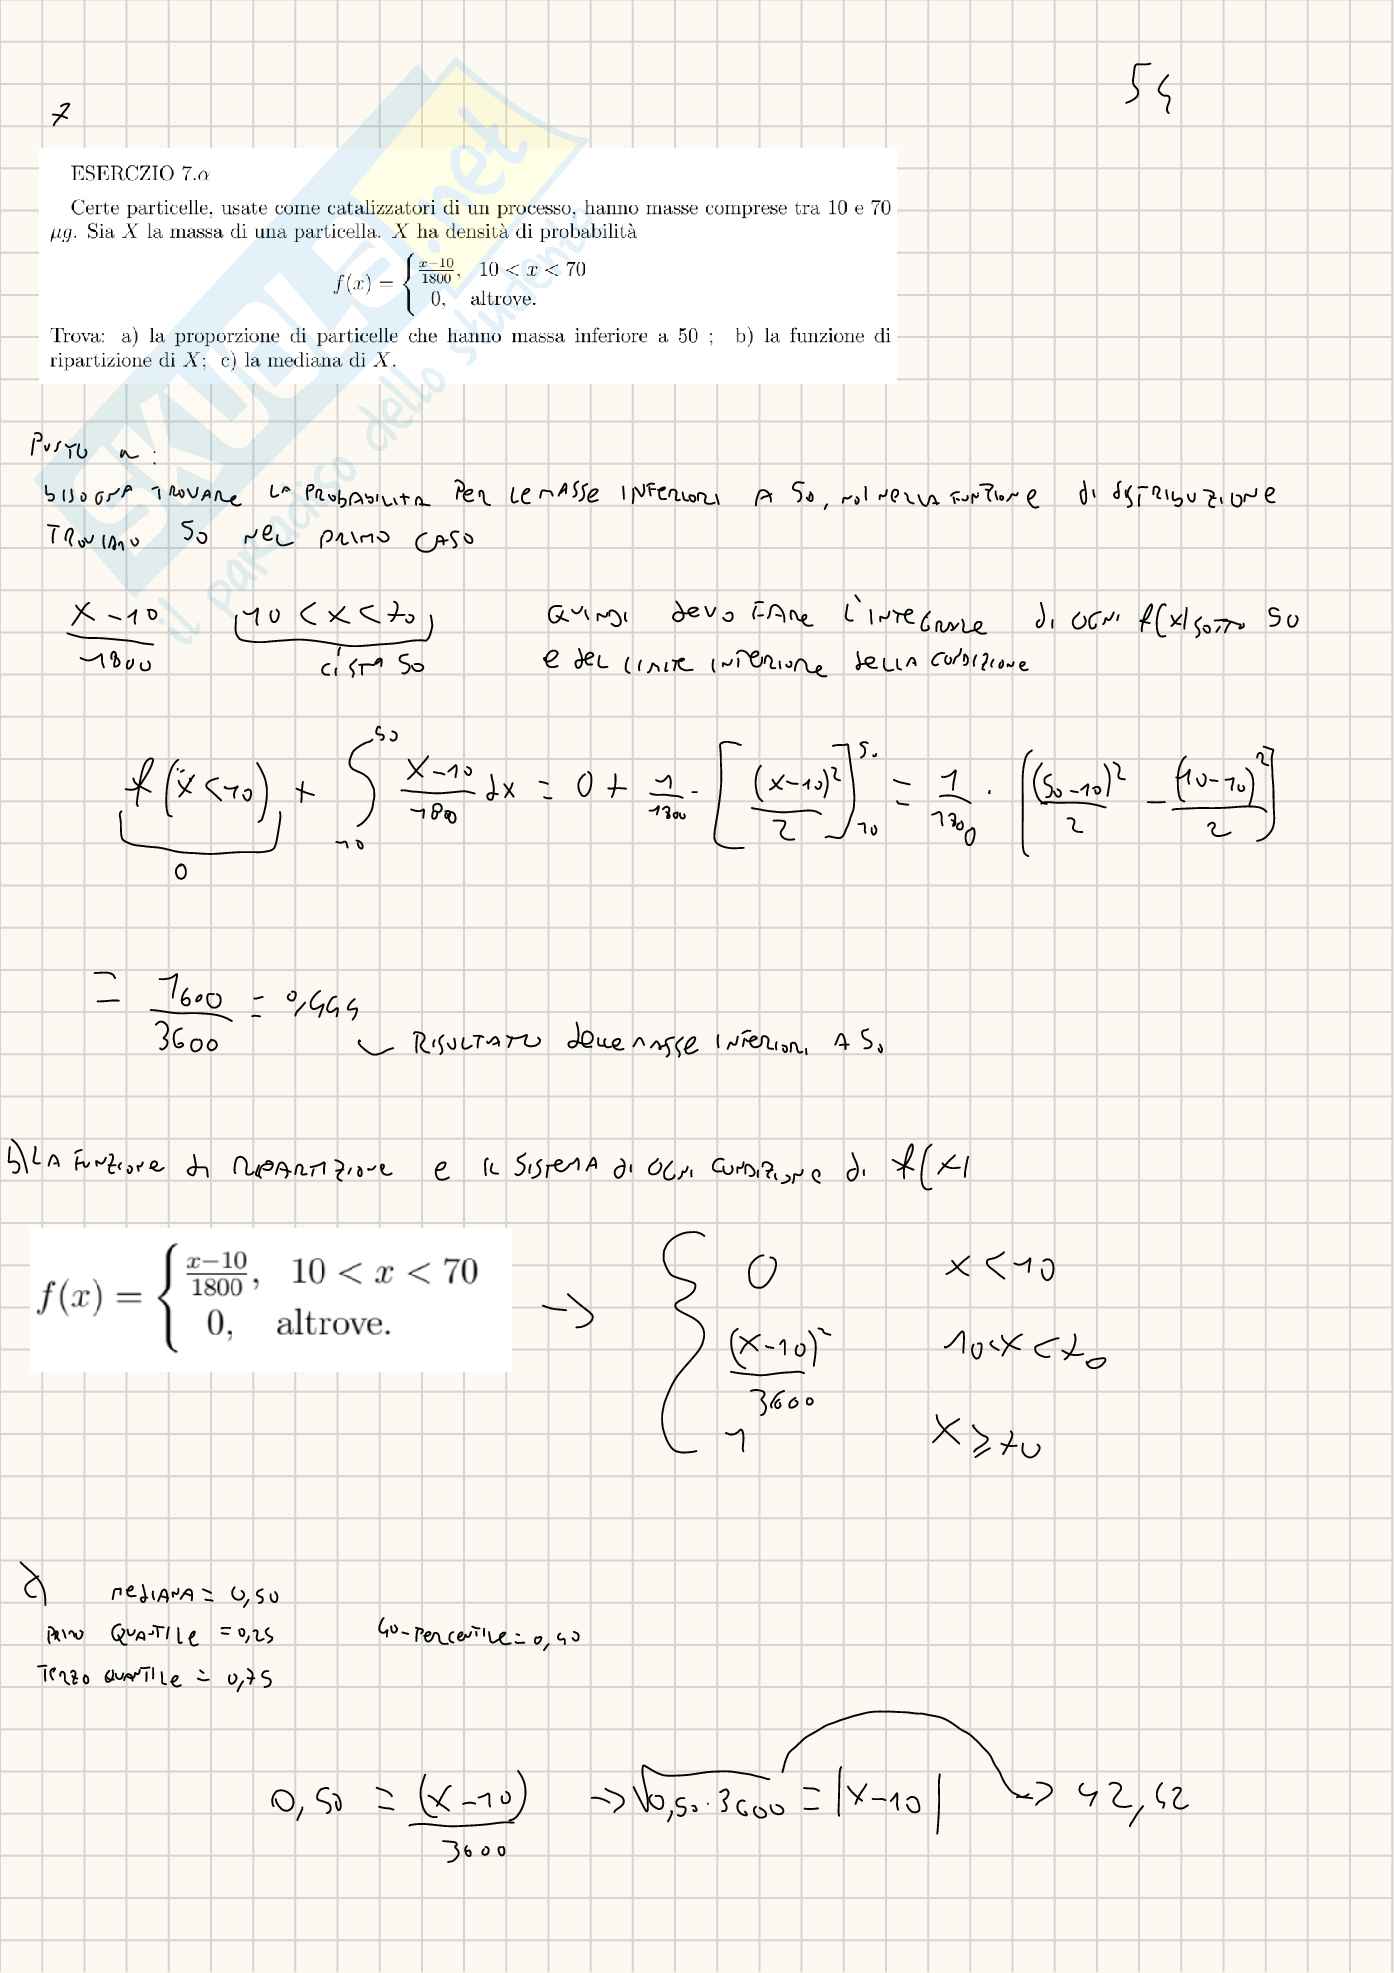 54
7
ESERCZIO 7.α
Certe particelle, usate come catalizzatori di un processo, hanno masse comprese tra 10 e 70
μg. Sia X la massa di una particella. X ha densità di probabilità
f(x) = { (x−10)/1800, 10 < x < 70
0, altrove.
Trova: a) la proporzione di particelle che hanno massa inferiore a 50 ; b) la funzione di
ripartizione di X; c) la mediana di X.
SKUOLA.net
il paradiso dello studente
PUNTO a:
BISOGNA TROVARE LA PROBABILITA PER LE MASSE INFERIORI A 50, NOI NELLA FUNZIONE di dISTRIBUZIONE
TROVIAMO 50 NEL PRIMO CASO
(x−10)/1800 10<x<70 QUINDI devo FARE L'INTEGRALE di OGNI f(x) SOTTO 50
CI STA 50 e del LIMITE INFERIORE dELLA CONDIZIONE
f(x<10) + ∫ 50 10 (x−10)/1800 dx = 0 + 1/1800 · [(x−10)²/2] 50 10 = 1/1800 · [(50−10)²/2 − (10−10)²/2]
0
= 1600/3600 = 0,444
RISULTATO delle MASSE INFERIORI A 50
b) LA FUNZIONE di RIPARTIZIONE e IL SISTEMA di OGNI CONDIZIONE di f(x)
f(x) = { (x−10)/1800, 10 < x < 70 → { 0 x<10
0, altrove. (x−10)²/3600 10<x<70
1 x⩾70
MEDIANA = 0,50
PRIMO QUANTILE = 0,25 40-PERCENTILE = 0,40
TERZO QUANTILE = 0,75
0,50 = (x−10)/3600 → √0,50·3600 = |x−10| → 42,42